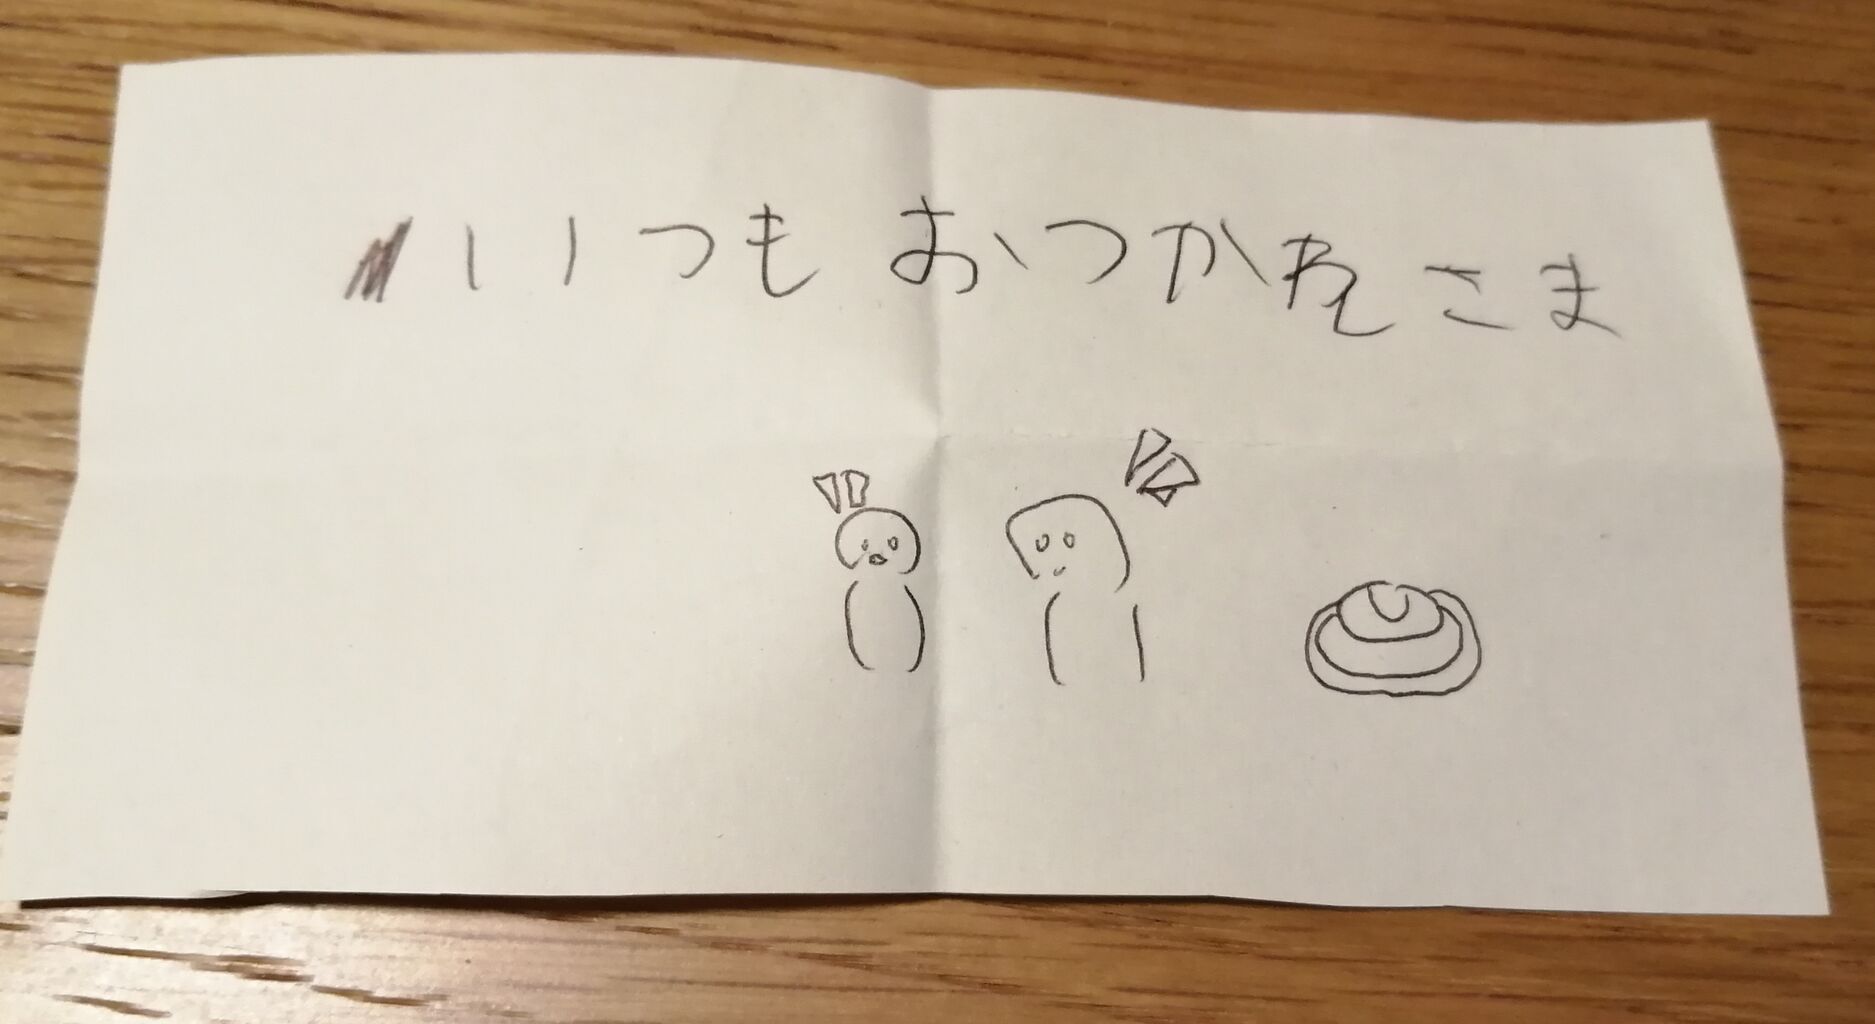 いつも おつかれさま